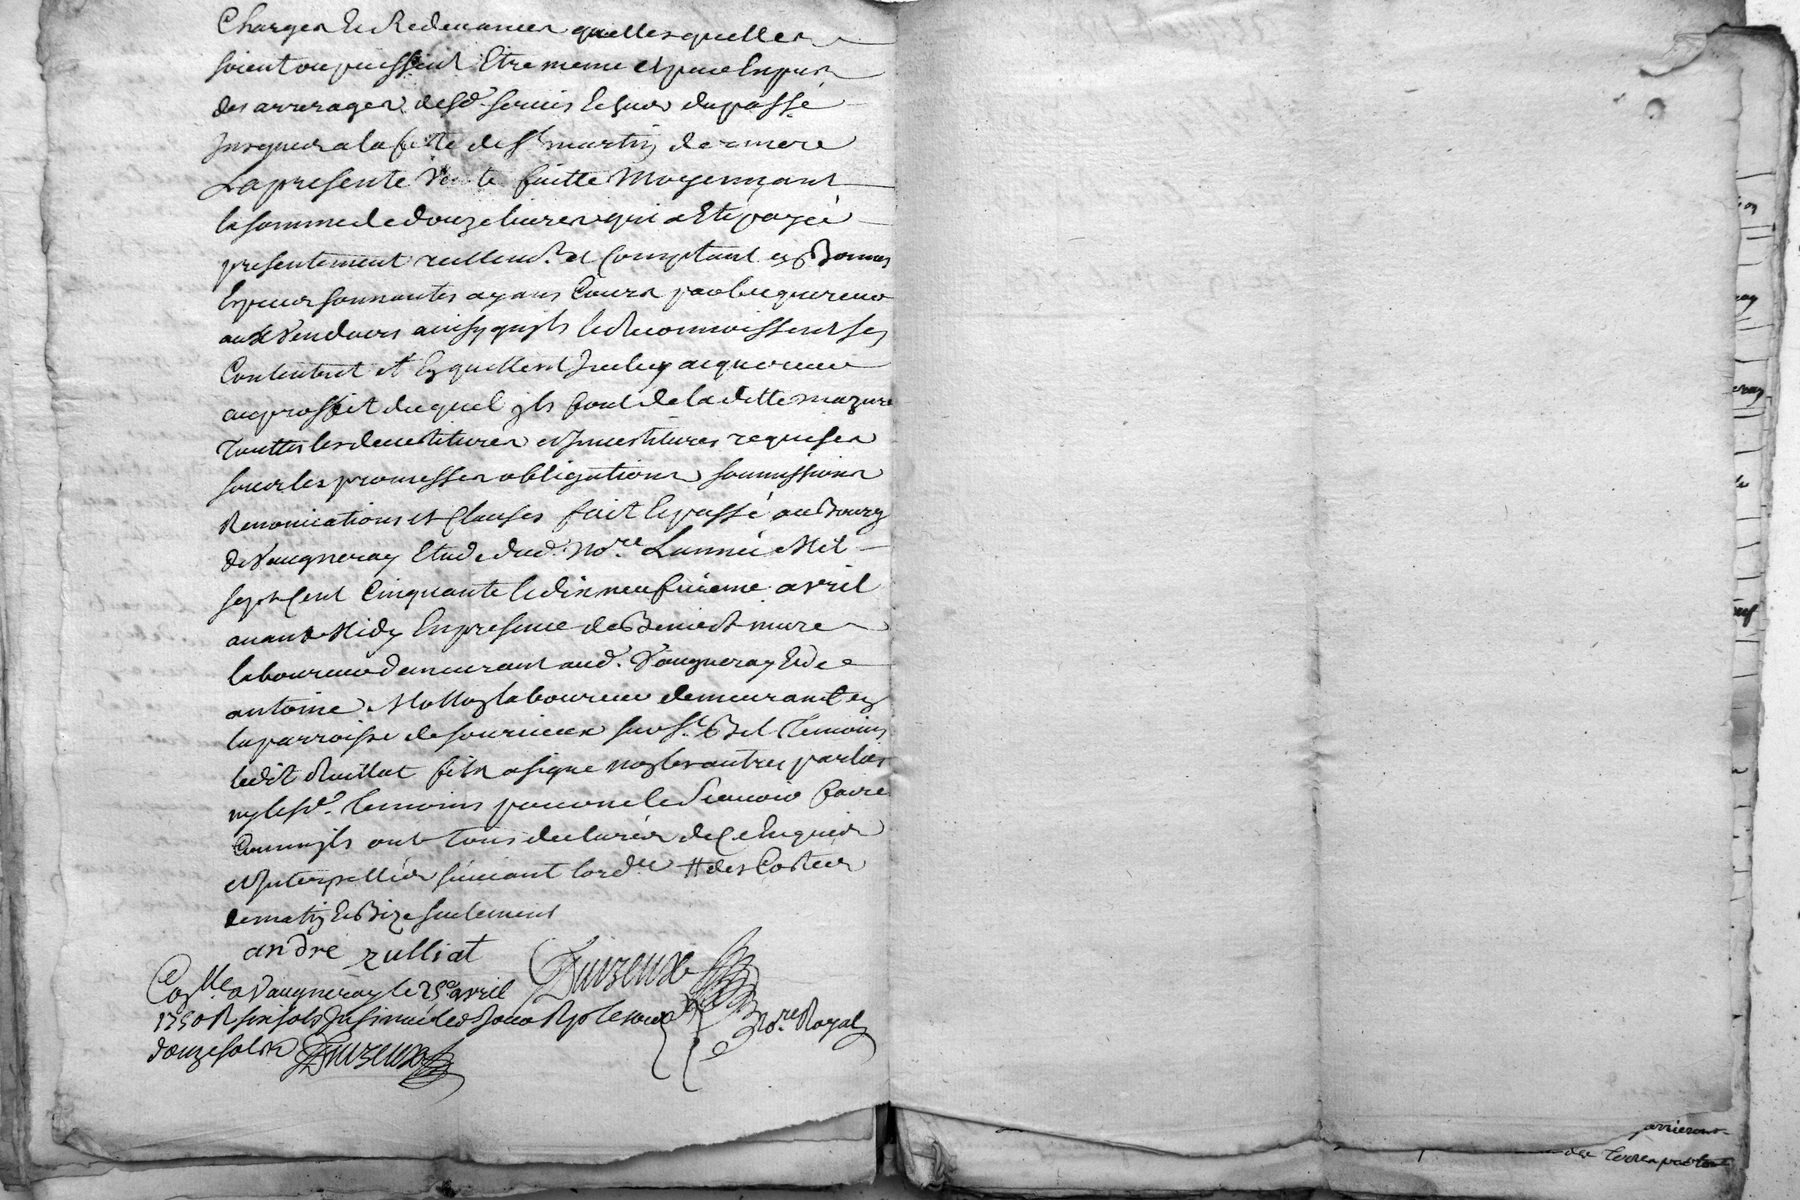 Charges et Redevances quelles quelles
soient ou puissent Etre meme et par Expres
des arrerages desd. servis Echus du passé
Jusques a la fete de st martin derniere
La presente Vente faitte Moyennant
la somme de douze livres qui a Eté payée
presentement reellem.t et Comptant en Bonnes
Especes sonnantes ayans Cours par l'acquereur
aux Vendeurs ainsy quils le Reconnoissent sen
Contentent et En quittent Jceluy acquereur
au proffit duquel jls font de la ditte mazure
Touttes les devestitures et Jnvestitures requises
sous les promesses obligations soumissions
Renonciations et Clauses fait et passé au Bourg
de Vaugneray Etude dud. No.re L'année Mil
sept Cent Cinquante le dix neufvieme avril
avant Midy En presence de Benoist mure
laboureur demeurant aud. Vaugneray Et de
antoine laboureur demeurant en
la parroisse de sourcieux sur st. Bel Temoins
ledit Rulliat fils a signé non les autres parties
ny lesd. Temoins pour ne le scavoir faire
Comm'jls ont Tous declarés de ce Enquis
et Jnterpellés suivant lord.ce # des Costés
de matin et Bize seulement
andre rulliat
Duizeux
Con.lle a Vaugneray le 25e avril
1750 R six sols Jnsinué led Jour R
douze sols Duizeux
No.re Royal
des Terres